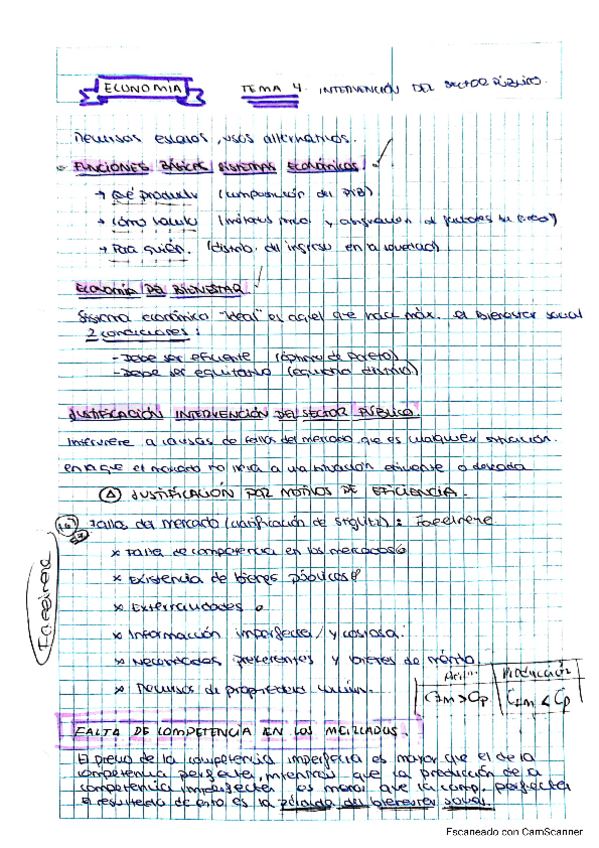 ECONOMÍA TEMA 4. INTERVENCIÓN DEL SECTOR PÚBLICO.
Recursos escasos, usos alternativos.
FUNCIONES BÁSICAS SISTEMAS ECONÓMICOS.
→ Qué producir (composición del PIB)
→ Cómo (métodos prod. y asignación de factores
→ Para quién. (distrib. del ingreso en la sociedad)
ECONOMÍA DEL BIENESTAR.
Sistema económico "ideal" es aquel que hace máx. el bienestar social
2 condiciones:
- Debe ser eficiente (óptimo de Pareto)
- Debe ser equitativo
JUSTIFICACIÓN INTERVENCIÓN DEL SECTOR PÚBLICO.
Interviene a causas de fallos del mercado que es cualquier situación
en la que el mercado no a una situación eficiente o deseada
A JUSTIFICACIÓN POR MOTIVOS DE EFICIENCIA.
Fallos del mercado (clasificación de Stiglitz): Faeeinere
Faeeinere
x Falta de competencia en los mercados
x Existencia de bienes públicos
x Externalidades
x Información imperfecta/y costosa.
x Necesidades preferentes y bienes de mérito
x Recursos de propiedad común.
Producción
CIm > Cp CIm < Cp
FALTA DE COMPETENCIA EN LOS MERCADOS.
El precio de la competencia imperfecta es mayor que el de la
competencia perfecta, mientras que la producción de la
competencia imperfecta es menor que la comp. perfecta
El resultado de esto es la pérdida del bienestar social.
Escaneado con CamScanner